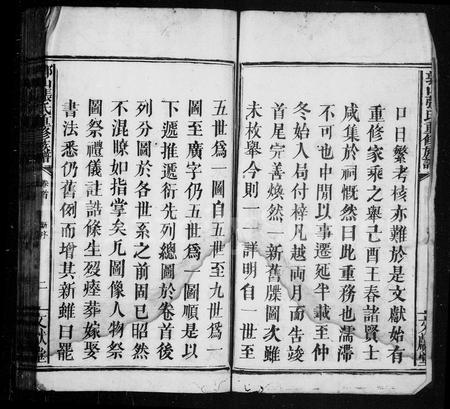 口日繁考核亦難於是文獻始有
重修家乘之舉己酉王春諸賢士
咸集於祠慨然曰此重務也濡滯
不可也中閒以事遷延半載至仲
冬始入局付梓凡越兩月而告竣
首尾完善煥然一新舊牒圖次雖
未枚舉今則一一詳明自一世至
五世爲一圖自五世至九世爲一
圖至廣字仍五世爲一圖順是以
下遞推遞衍先列總圖於卷首後
列分圖於各世系之前固已昭然
不混瞭如指掌矣凡圖像人物祭
圖祭禮儀註誥條生歿瘞葬嫁娶
書法悉仍舊例而增其新雖曰罷
山張氏重修族譜 卷首 序 二 文獻堂